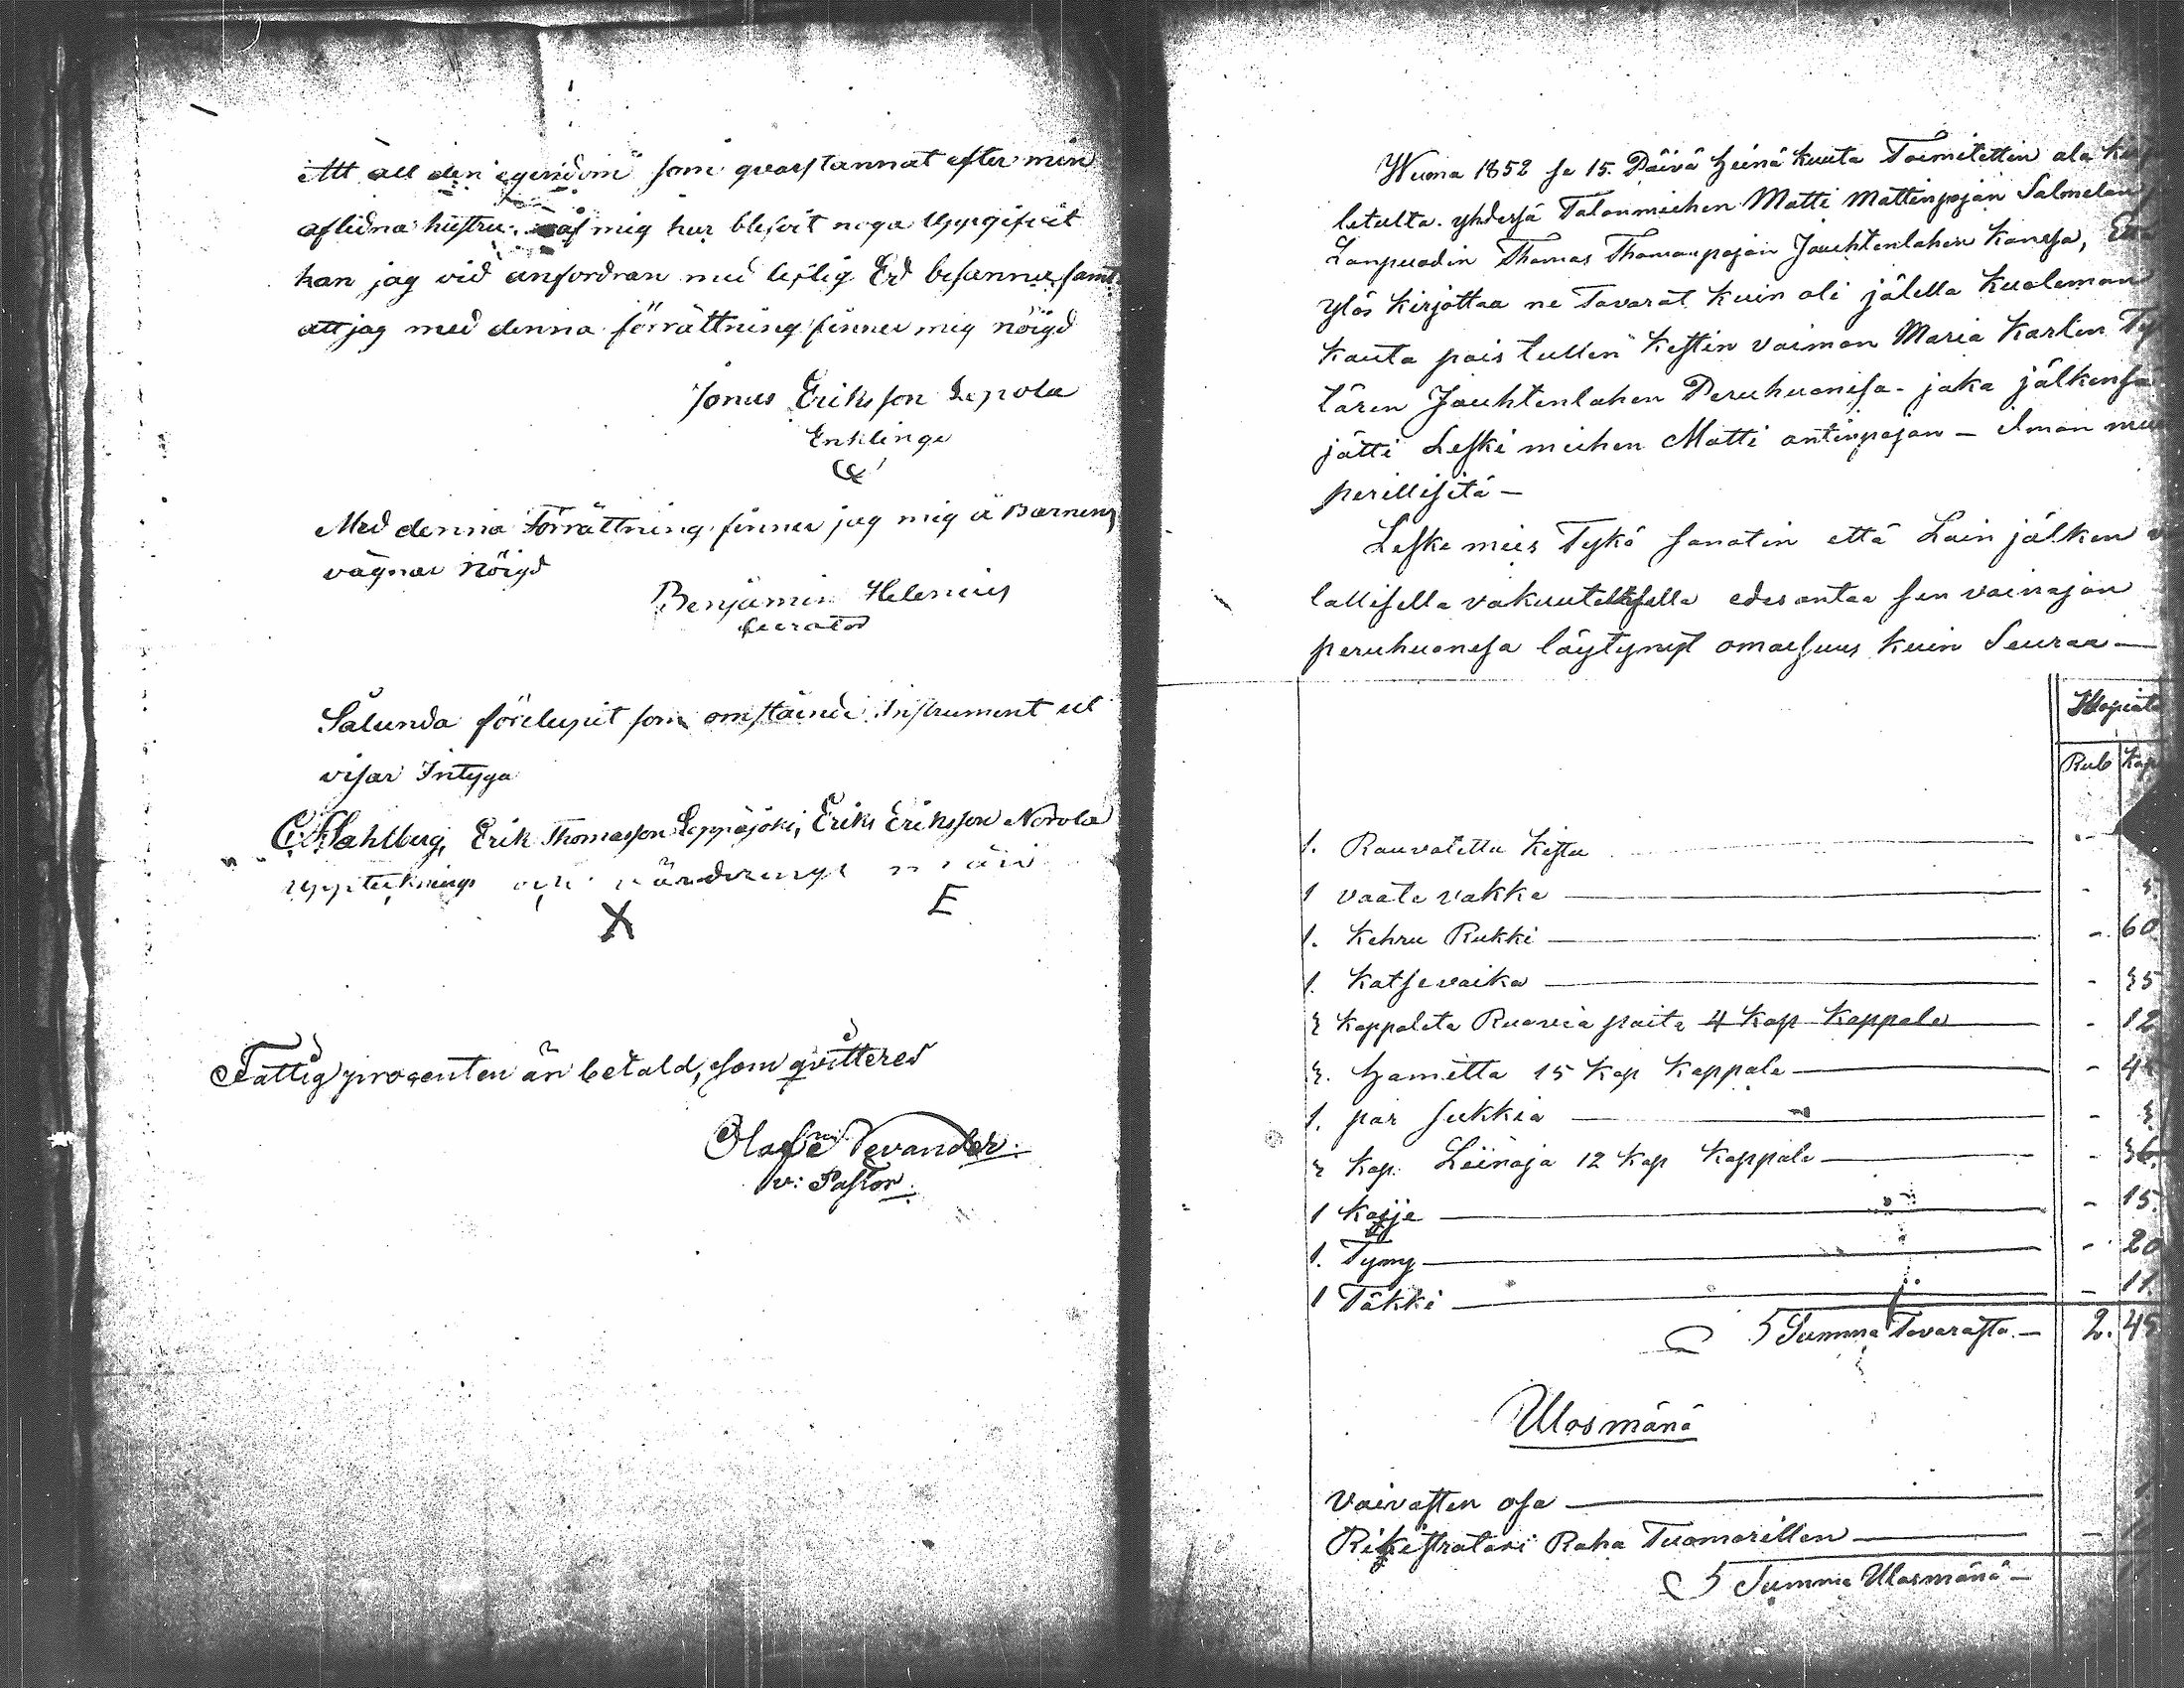 Att all den egendom som qvarstannat efter min
aflidna hustru af mig här blifvit noga uppgifvit
kan jag vid anfordran med liflig Ed besanna, samt
att jag med denna förrättning finner mig nöigd
Jonus Eriksson Lepola
Enklinge
Med denna Förrättning finner jag mig å Barnens
vägnar Nöigd
Benjamin Helenius
Curator
Sålunda förelupit som omstäende Instrument ut
visar Intyga
C. Sahlberg, Erik Thomasson Leppäjoki, Erik Eriksson Norola
upptecknings och värderings män
X E
Fattig procenten än betald, som qvitteres
Olof Nevander.
v: Pastor.
Wuona 1852 se 15. Päivä Heinä kuuta Toimitettin ala
letulta. yhdesä Talonmiehen Matti Mattinpojan Salmelan
Lanpuodin Thomas Thomanpojan Jauhtenlahen kanssa,
ylös kirjottaa ne Tavarat kuin oli jälellä Kualeman
kauta pois tullen Kestin vaimon Maria Karlen Ty
tären Jouhtenlahen Peruhuonesa - joka jälkensä
jätti Leski miehen Matti antinpojan - ilman
perillisitä -
Leske mies Tykö sanotin että Lain jälken
lallisella vakuutuksella edesantaa sen vainajan
peruhuonesa löytynyt omaisuus kuin Seuraa -
Hopiata
Rub Kop
1. Rauvatettu Kistu -
1 vaate vakka -
1. Kehru Rukki - 60
1. Katsevaika - 35
3 Kappaleta Ruovia paita 4 Kop Kappale - 12
3. Hametta 15 Kop Kappale - 45
1. par sukkia - 3
3 Kap. Liinoja 12 Kop Kappale - 36.
1 Koije - 15.
1. Tyny - 20
1 Täkki - 11.
Summa Tavarasta - 2. 45
Ulosmänö
Vaivasten osa
Rikistratori Raha Tuomarillen -
Summa Ulosmänö -